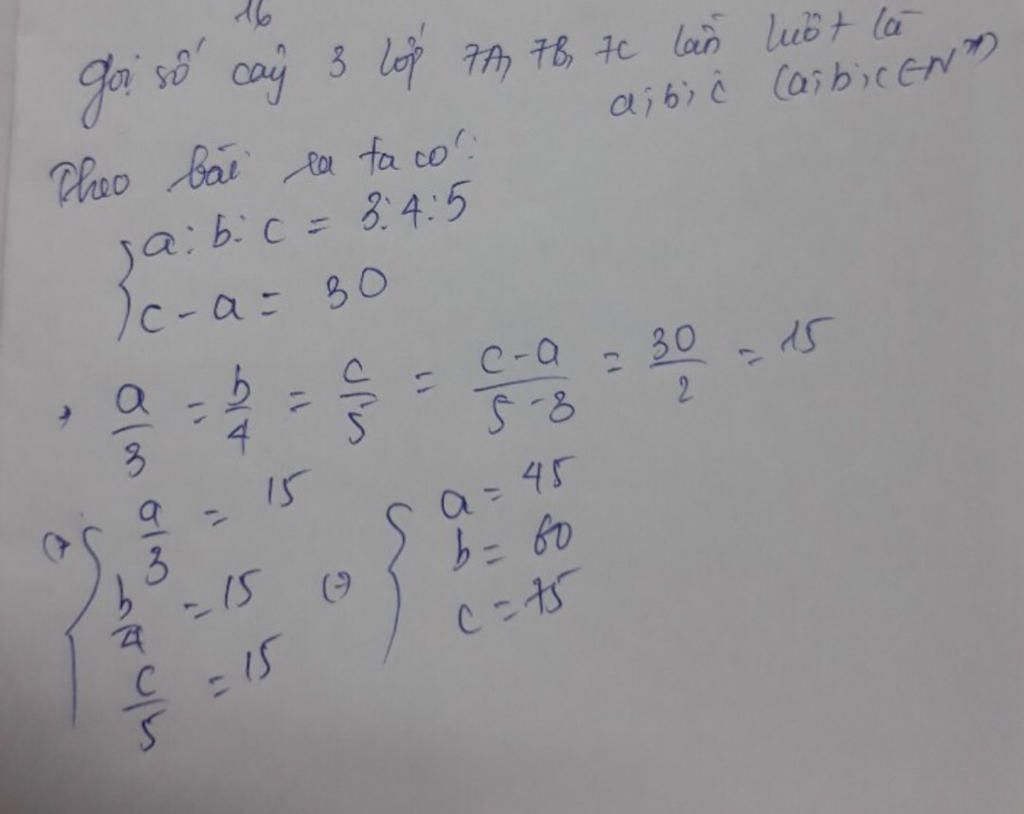 16
Gọi số cây 3 lớp 7A, 7B, 7C lần lượt là
a; b; c (a; b; c ∈ N*)
Theo bài ra ta có:
{ a : b : c = 3 : 4 : 5
c - a = 30
a/3 = b/4 = c/5 = (c - a)/(5 - 3) = 30/2 = 15
{ a/3 = 15 { a = 45
b/4 = 15 (=) b = 60
c/5 = 15 c = 75